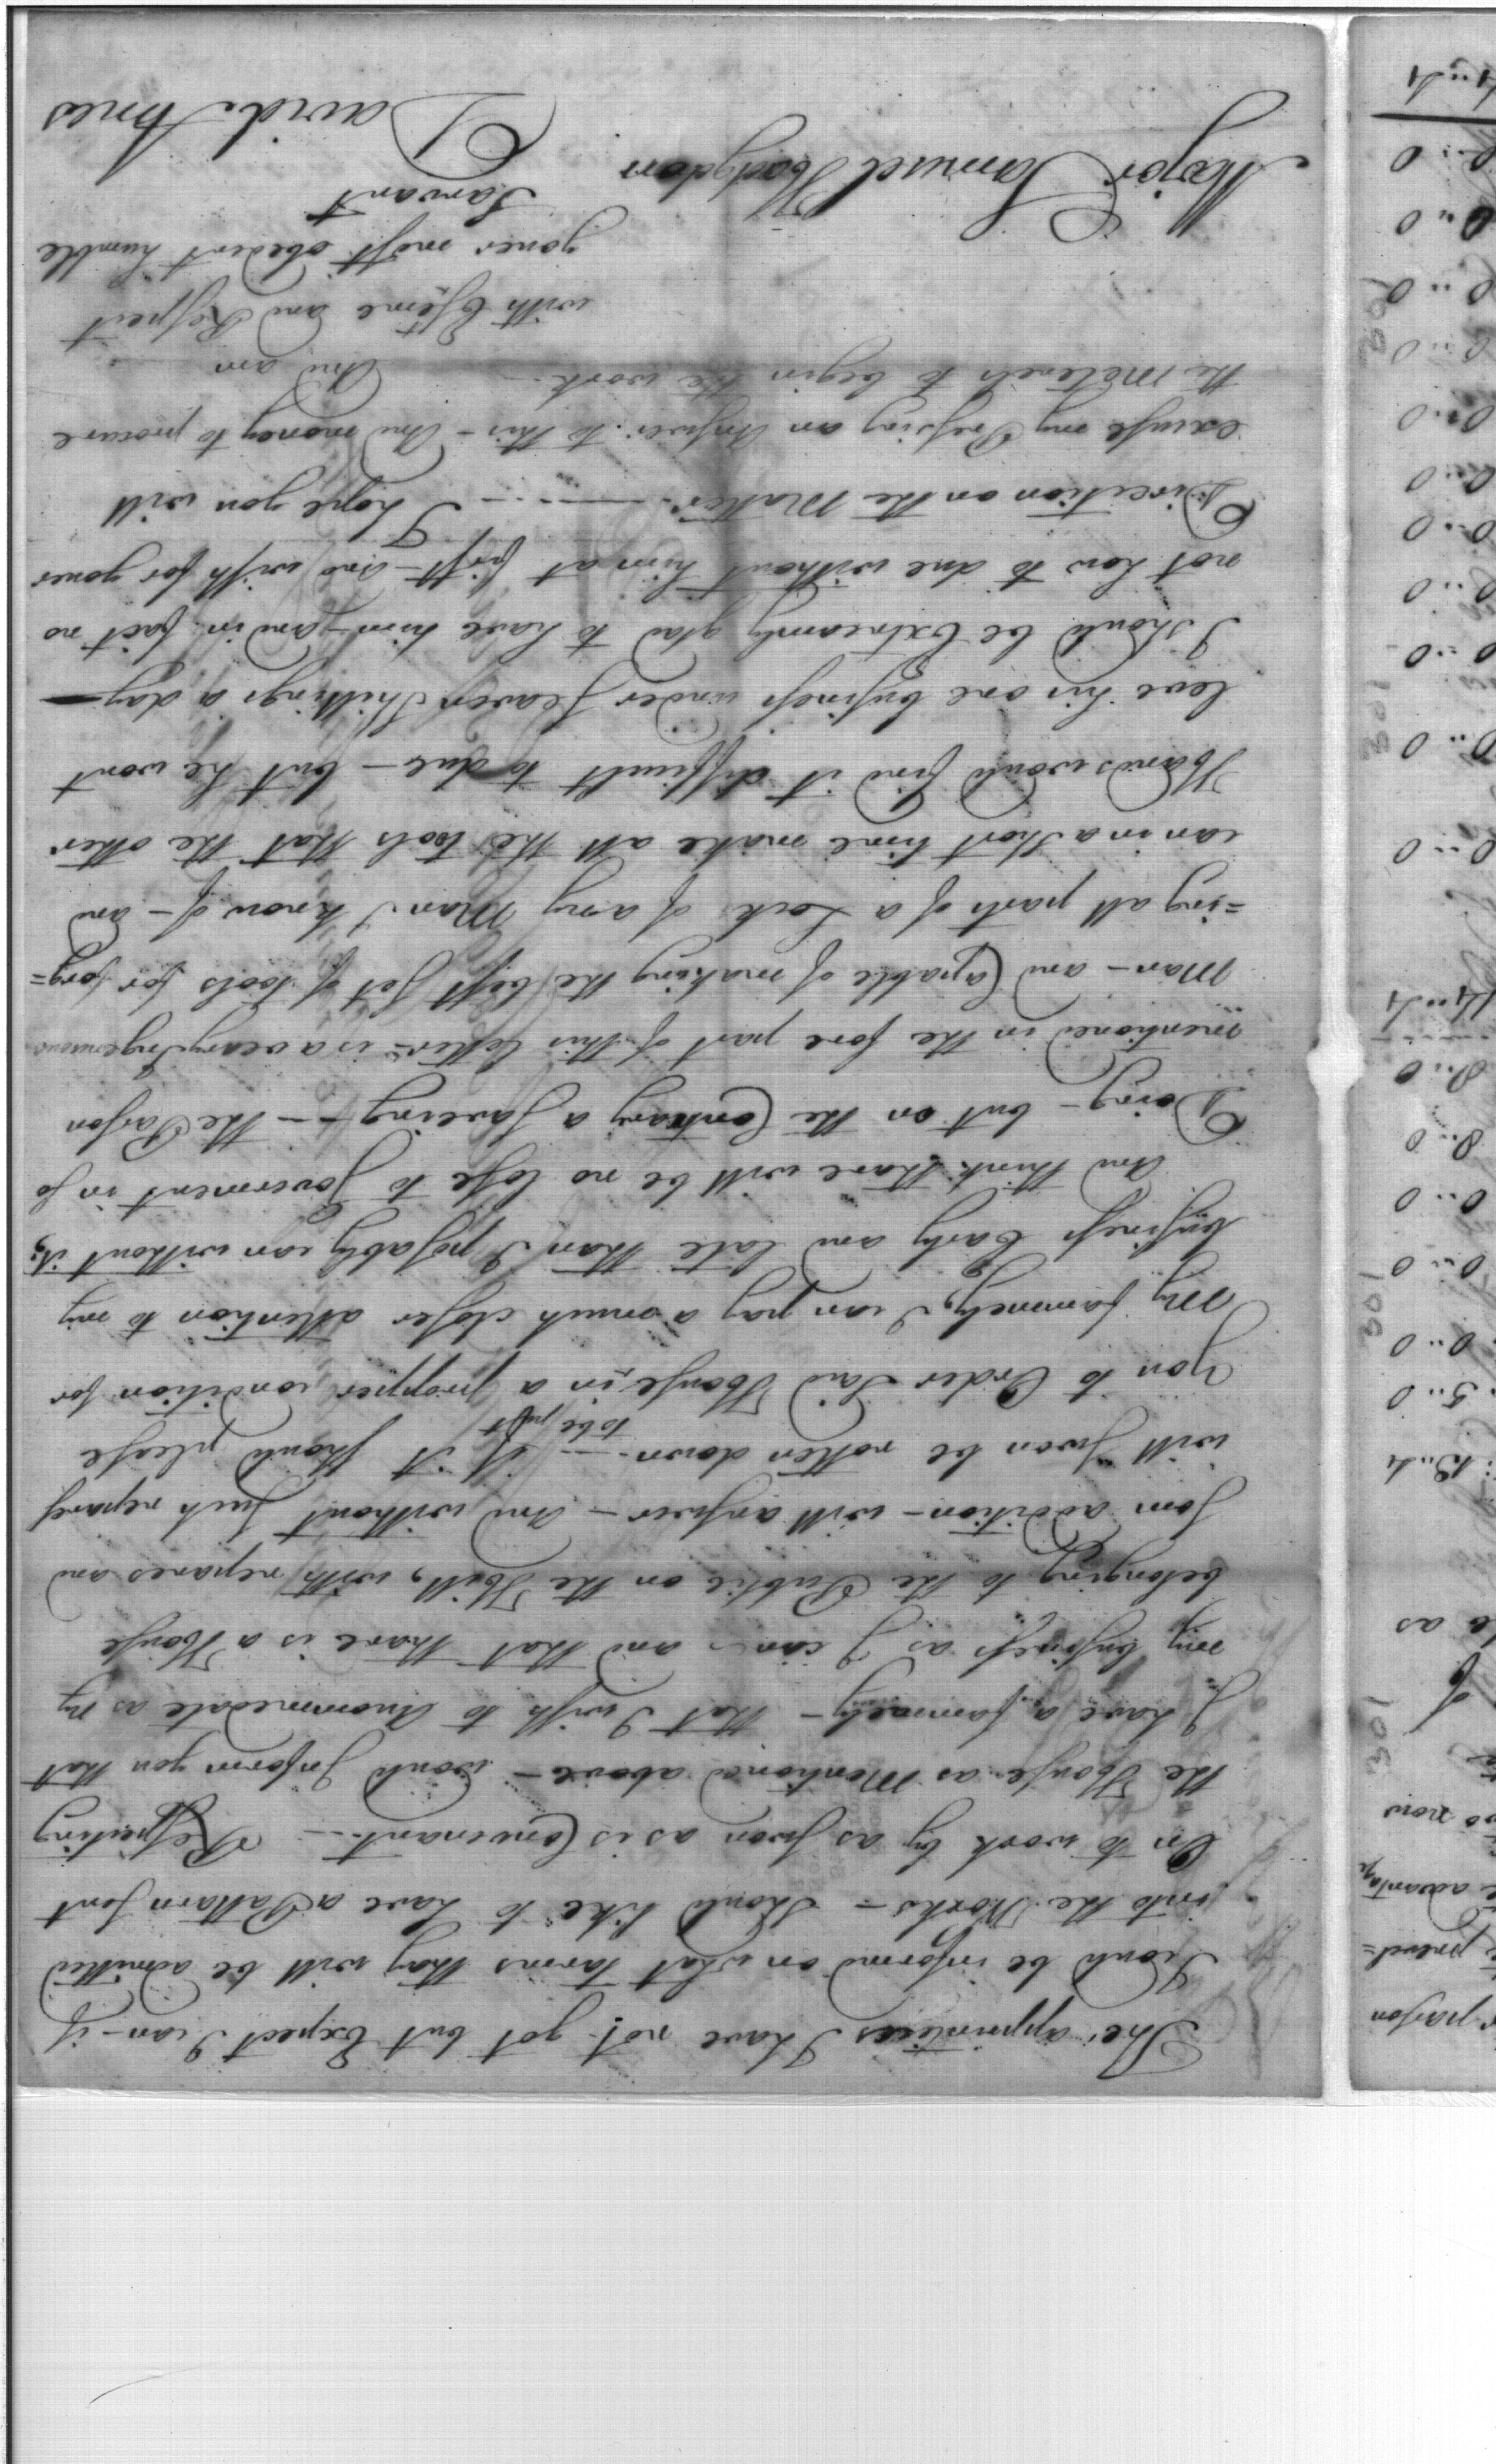 The apprintices I have not got but Expect I can - if
I could be informd on what tarms thay will be admitted
into the Works - Should like to have a Pattarn sent
On to work by as swon as is Convenant - Respecting
the House as Mentioned above - would Inform you that
I have a fammely - that I wish to Accommedate as ny
my business as I can - and that thare is a House
belonging to the Publie on the Hill, with repares and
som addition - will answer - And without such repares
will swon be rotten down - if it should please
you to Order Said House to be put in a propper condition for
My fammely, I can pay a much closer attention to my
business Early and late than I posably can without it,
And think thare will be no loss to Government in so
Doing - but on the Contrary a saveing - the Parson
mentioned in the fore part of this letter - is a veary Ingenious
Man - and Capable of making the best set of tools for forg=
=ing all parts of a Lock of any Man I know of - and
can in a short time make all the tools that the other
Hands would find it difficult to due - but he wont
leve his one business under Seaven Shillings a day -
I should be Extreamly glad to have him - and in fact no
not how to due without him at first - and wish for youer
Direction on the Matter - I hope you will
excuse my Pressing an Answer to this - And money to procure
the Meterels to begin the work - And am
with Esteme and Respect
youer most obedient humble
Sarvant
David Ames
Major Samuel Hodgdon
parson
advantage
now
as
13..4
5..0
0..0
0..0
0..0
8..0
8..0
0..0
0..0
0..0
0..0
0..0
0..0
0..0
0..0
0..0
0..0
0..0
0..0